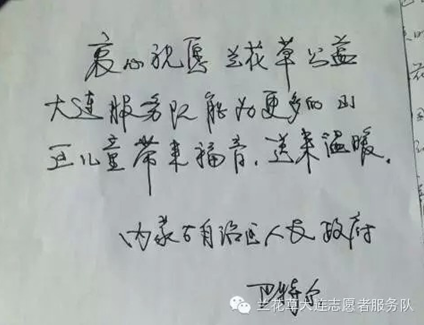 衷心祝愿兰花草公益
大连服务队能为更多的山
区儿童带来福音,送来温暖。
内蒙古自治区人民政府
巴特尔
兰花草大连志愿者服务队